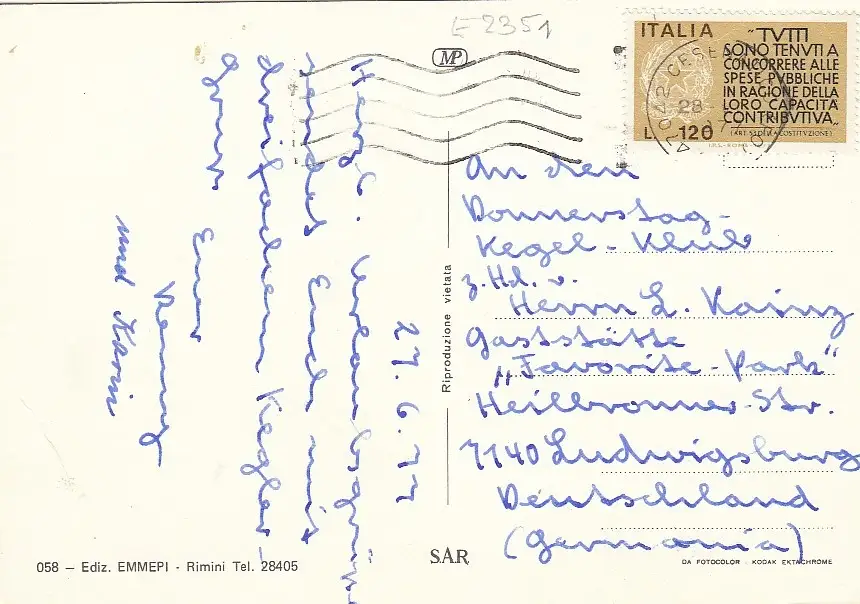 E 2351
MP
ITALIA
"TVTTI
SONO TENVTI A
CONCORRERE ALLE
SPESE PVBBLICHE
IN RAGIONE DELLA
LORO CAPACITÀ
CONTRIBVTIVA„
(ART. 53 DELLA COSTITVZIONE)
L. 120
I.P.S.-ROMA
28
27.6.77
Herzl. Urlaubsgrüsse
sendet Euch mit
dreifachem Kegler-
gruss
Euer
und Karin
Riproduzione vietata
An den
Donnerstag-
Kegel-Klub
z.Hd. v.
Herrn L. Kainz
Gaststätte
"Favorite-Park"
Heilbronner-Str.
7140 Ludwigsburg
Deutschland
(Germania)
058 – Ediz. EMMEPI - Rimini Tel. 28405
SAR
DA FOTOCOLOR - KODAK EKTACHROME